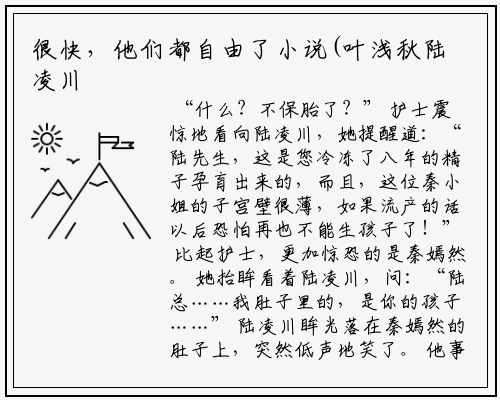 很快，他们都自由了小说(叶浅秋陆
凌川
“什么？不保胎了？” 护士震
惊地看向陆凌川，她提醒道：“
陆先生，这是您冷冻了八年的精
子孕育出来的，而且，这位秦小
姐的子宫壁很薄，如果流产的话
以后恐怕再也不能生孩子了！”
比起护士，更加惊恐的是秦嫣然
。她抬眸看着陆凌川，问：“陆
总……我肚子里的，是你的孩子
……” 陆凌川眸光落在秦嫣然的
肚子上，突然低声地笑了。他事